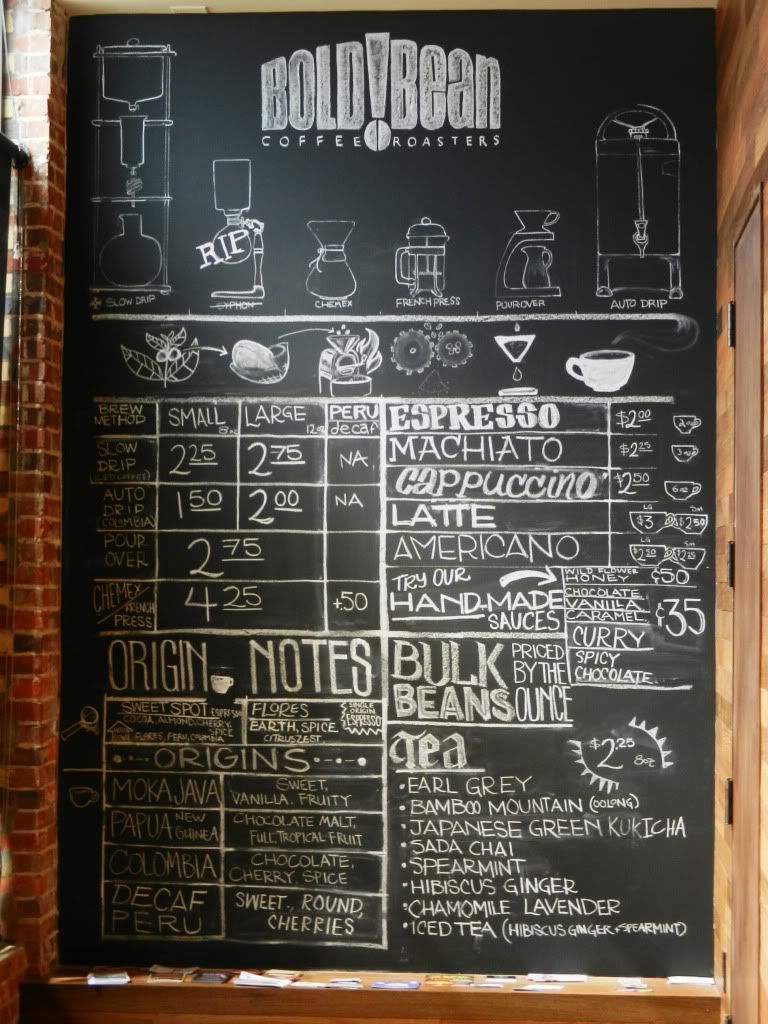 BOLD!Bean
COFFEE ROASTERS
RIP
SLOW DRIP
SYPHON
CHEMEX
FRENCH PRESS
POUROVER
AUTO DRIP
BREW METHOD SMALL 8oz LARGE 12oz PERU decaf
SLOW DRIP (ICED COFFEE) 2 25 2 75 NA
AUTO DRIP (COLOMBIA) 1 50 2 00 NA
POUR OVER 2 75
CHEMEX/FRENCH PRESS 4 25 +50
ESPRESSO $2 00 2oz
MACHIATO $2 25 3oz
CAPPUCCINO $2 50 6oz
LATTE LG $3 Sm $2 50
AMERICANO LG $2 50 Sm $2 25
TRY OUR
HAND-MADE
SAUCES
WILD FLOWER
HONEY ¢50
CHOCOLATE
VANILLA
CARAMEL
CURRY
SPICY
CHOCOLATE
¢35
ORIGIN NOTES
SWEET SPOT ESPRESSO
COCOA, ALMOND, CHERRY,
SPICE
FLORES, PERU, COLOMBIA
FLORES
EARTH, SPICE
CITRUS ZEST
SINGLE
ORIGIN
ESPRESSO
ORIGINS
MOKA JAVA SWEET, VANILLA, FRUITY
PAPUA NEW GUINEA CHOCOLATE MALT, FULL, TROPICAL FRUIT
COLOMBIA CHOCOLATE, CHERRY, SPICE
DECAF PERU SWEET, ROUND, CHERRIES
BULK
BEANS
PRICED
BY THE
OUNCE
Tea
$2.25
8oz
• EARL GREY
• BAMBOO MOUNTAIN (OOLONG)
• JAPANESE GREEN KUKICHA
• SADA CHAI
• SPEARMINT
• HIBISCUS GINGER
• CHAMOMILE LAVENDER
• ICED TEA (HIBISCUS GINGER + SPEARMINT)